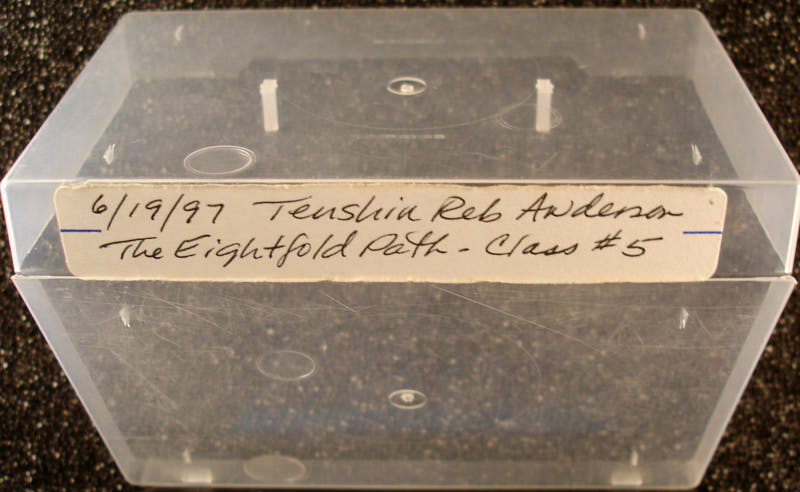 6/19/97 Tenshin Reb Anderson
The Eightfold Path - Class #5